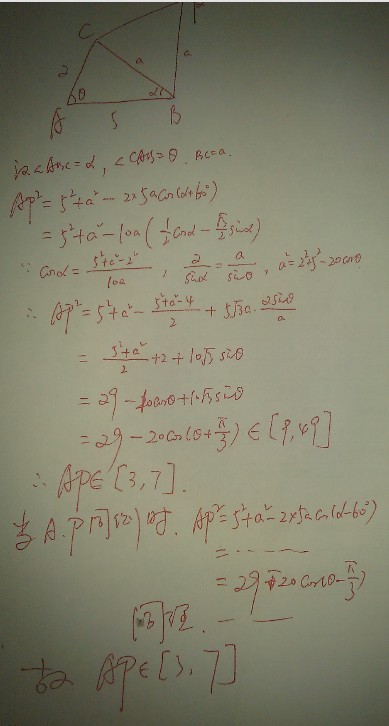 C
P
2
a
a
θ
α
A
5
B
设∠ABC=α, ∠CAB=θ. BC=a.
AP²=5²+a²-2×5a cos(α+60°)
=5²+a²-10a(½cosα-√3/2 sinα)
∵ cosα=(5²+a²-2²)/10a , 2/sinα=a/sinθ , a²=2²+5²-20cosθ
∴ AP²=5²+a²-(5²+a²-4)/2+5√3a·2sinθ/a
=(5²+a²)/2+2+10√3sinθ
=29-10cosθ+10√3sinθ
=29-20cos(θ+π/3)∈[9,49]
∴AP∈[3,7].
当A.P同侧时. AP²=5²+a²-2×5a cos(α-60°)
=……
=29-20cos(θ-π/3)
同理. — —
故 AP∈[3,7]